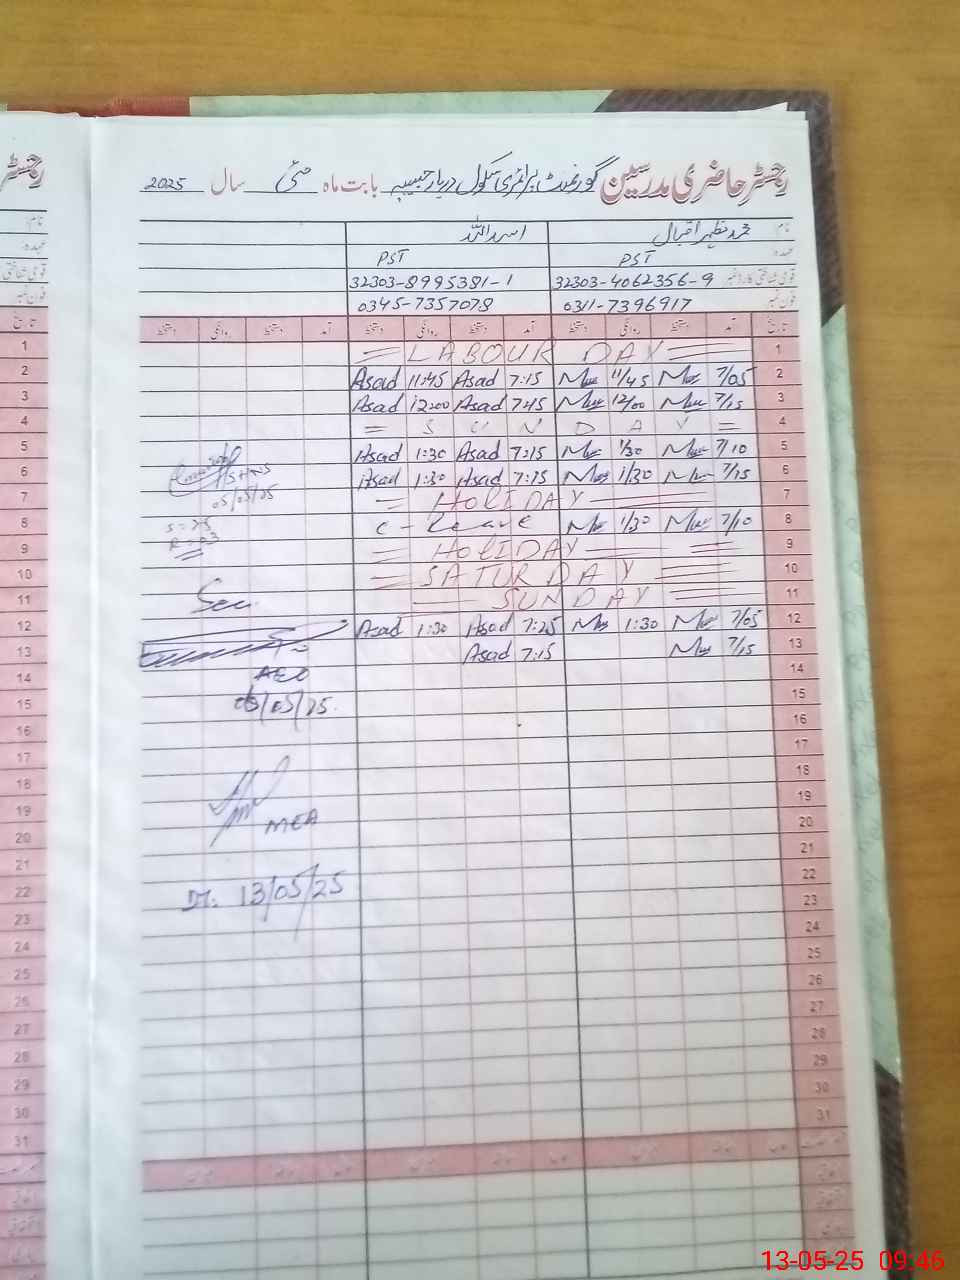 رجسٹر حاضری مدرسین گورنمنٹ پرائمری سکول دربار حبیبیہ بابت ماہ مئی سال 2025
نام محمد ظہیر اقبال اسد اللہ
عہدہ PST PST
قومی شناختی کارڈ نمبر 32303-4062356-9 32303-8995381-1
فون نمبر 0311-7396917 0345-7357078
تاریخ آمد دستخط روانگی دستخط آمد دستخط روانگی دستخط آمد دستخط روانگی دستخط
1 = LABOUR DAY = 1
2 Asad 11:45 Asad 7:15 11/45 7/05 2
3 Asad 12:00 Asad 7:45 12/00 7/15 3
4 = SUNDAY = 4
5 Asad 1:30 Asad 7:15 1/30 7/10 5
6 Asad 1:30 Asad 7:25 1/30 7/15 6
05/05/25
7 = HOLIDAY = 7
8 C-Leave 1/30 7/10 8
9 = HOLIDAY = 9
10 = SATURDAY = 10
11 SUNDAY 11
12 Asad 1:30 Asad 7:25 1:30 7/05 12
13 Asad 7:15 7/15 13
14 AEO 14
15 /05/25. 15
16 16
17 17
18 18
19 19
20 MEA 20
21 21
22 22
23 Dt. 13/05/25 23
24 24
25 25
26 26
27 27
28 28
29 29
30 30
31 31
13-05-25 09:46